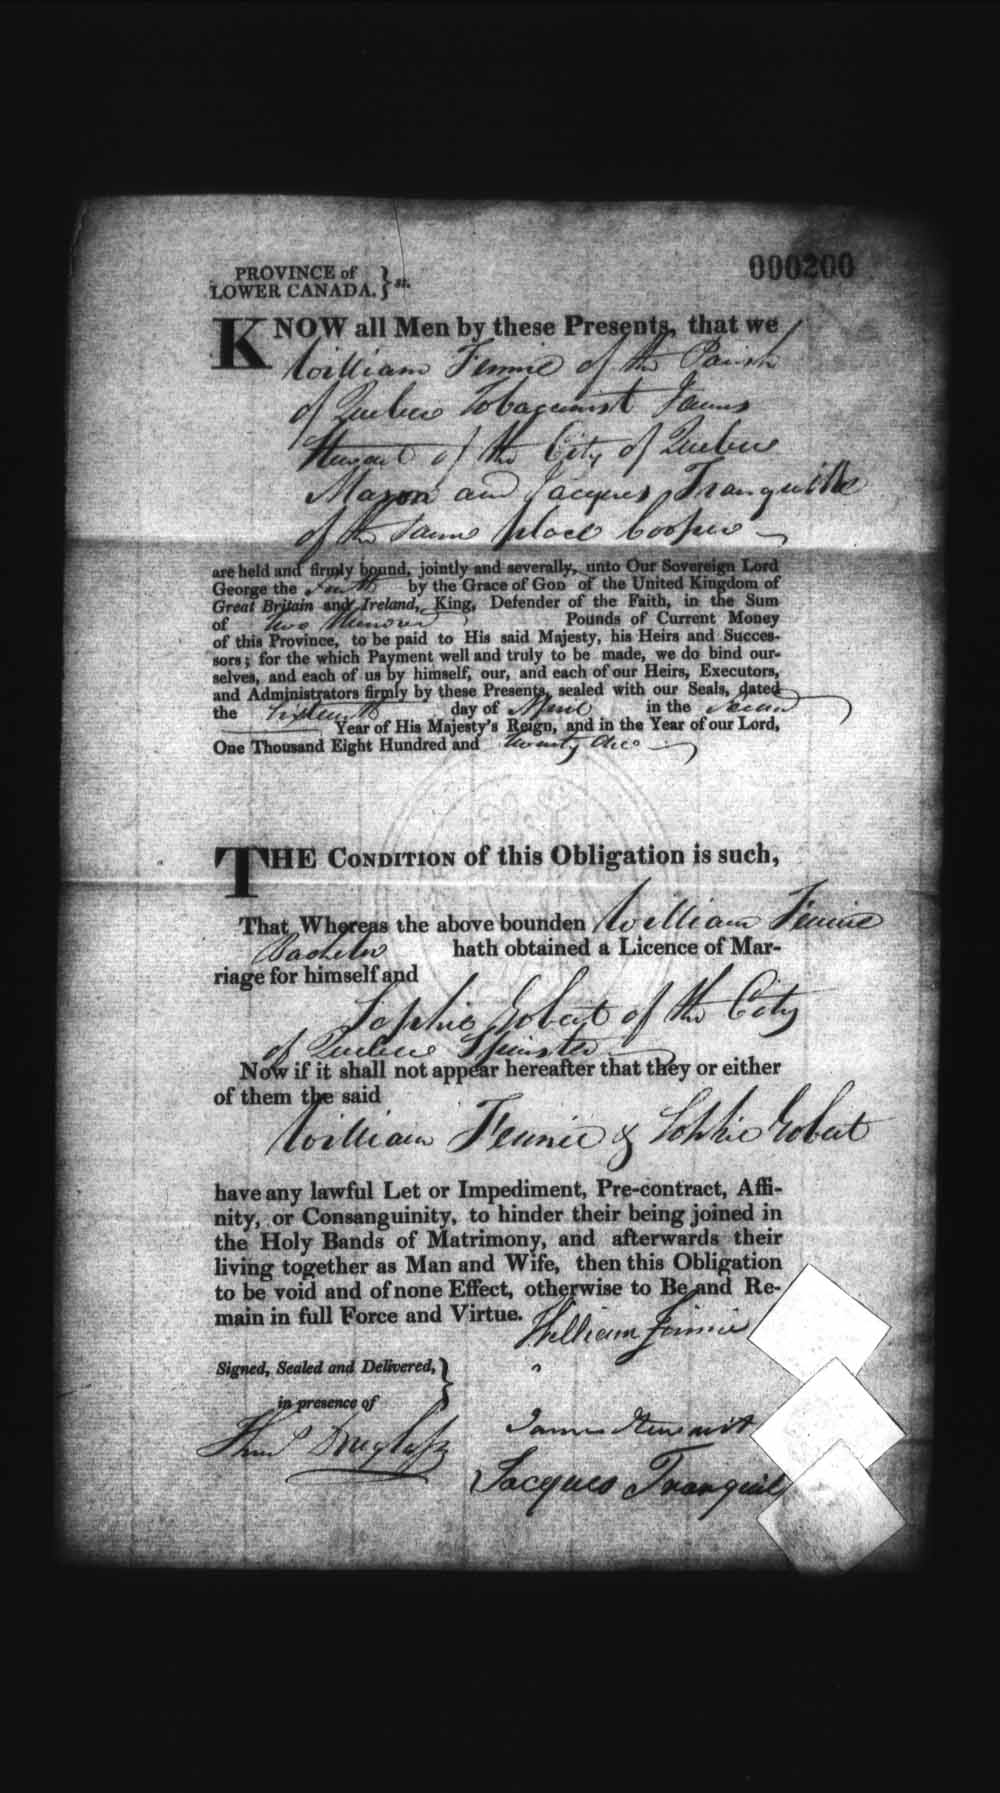 PROVINCE of
LOWER CANADA. } ss.
000200
KNOW all Men by these Presents, that we
William Fennie of the Parish
of Quebec Tobaccinist James
Stewart of the City of Quebec
Mason and Jacques Tranquille
of the same place Cooper
are held and firmly bound, jointly and severally, unto Our Sovereign Lord
George the Fourth by the Grace of GOD of the United Kingdom of
Great Britain and Ireland, King, Defender of the Faith, in the Sum
of Two Hundred Pounds of Current Money
of this Province, to be paid to His said Majesty, his Heirs and Succes-
sors; for the which Payment well and truly to be made, we do bind our-
selves, and each of us by himself, our, and each of our Heirs, Executors,
and Administrators firmly by these Presents, sealed with our Seals, dated
the Sixteenth day of April in the Second
Year of His Majesty's Reign, and in the Year of our Lord,
One Thousand Eight Hundred and twenty One
THE CONDITION of this Obligation is such,
That Whereas the above bounden William Fennie
Bachelor hath obtained a Licence of Mar-
riage for himself and
Sophie Gobert of the City
of Quebec Spinster
Now if it shall not appear hereafter that they or either
of them the said
William Fennie & Sophie Gobert
have any lawful Let or Impediment, Pre-contract, Affi-
nity, or Consanguinity, to hinder their being joined in
the Holy Bands of Matrimony, and afterwards their
living together as Man and Wife, then this Obligation
to be void and of none Effect, otherwise to Be and Re-
main in full Force and Virtue.
William Finnie
Signed, Sealed and Delivered,
in presence of }
James Stewart
Thos Douglass
Jacques Tranquil